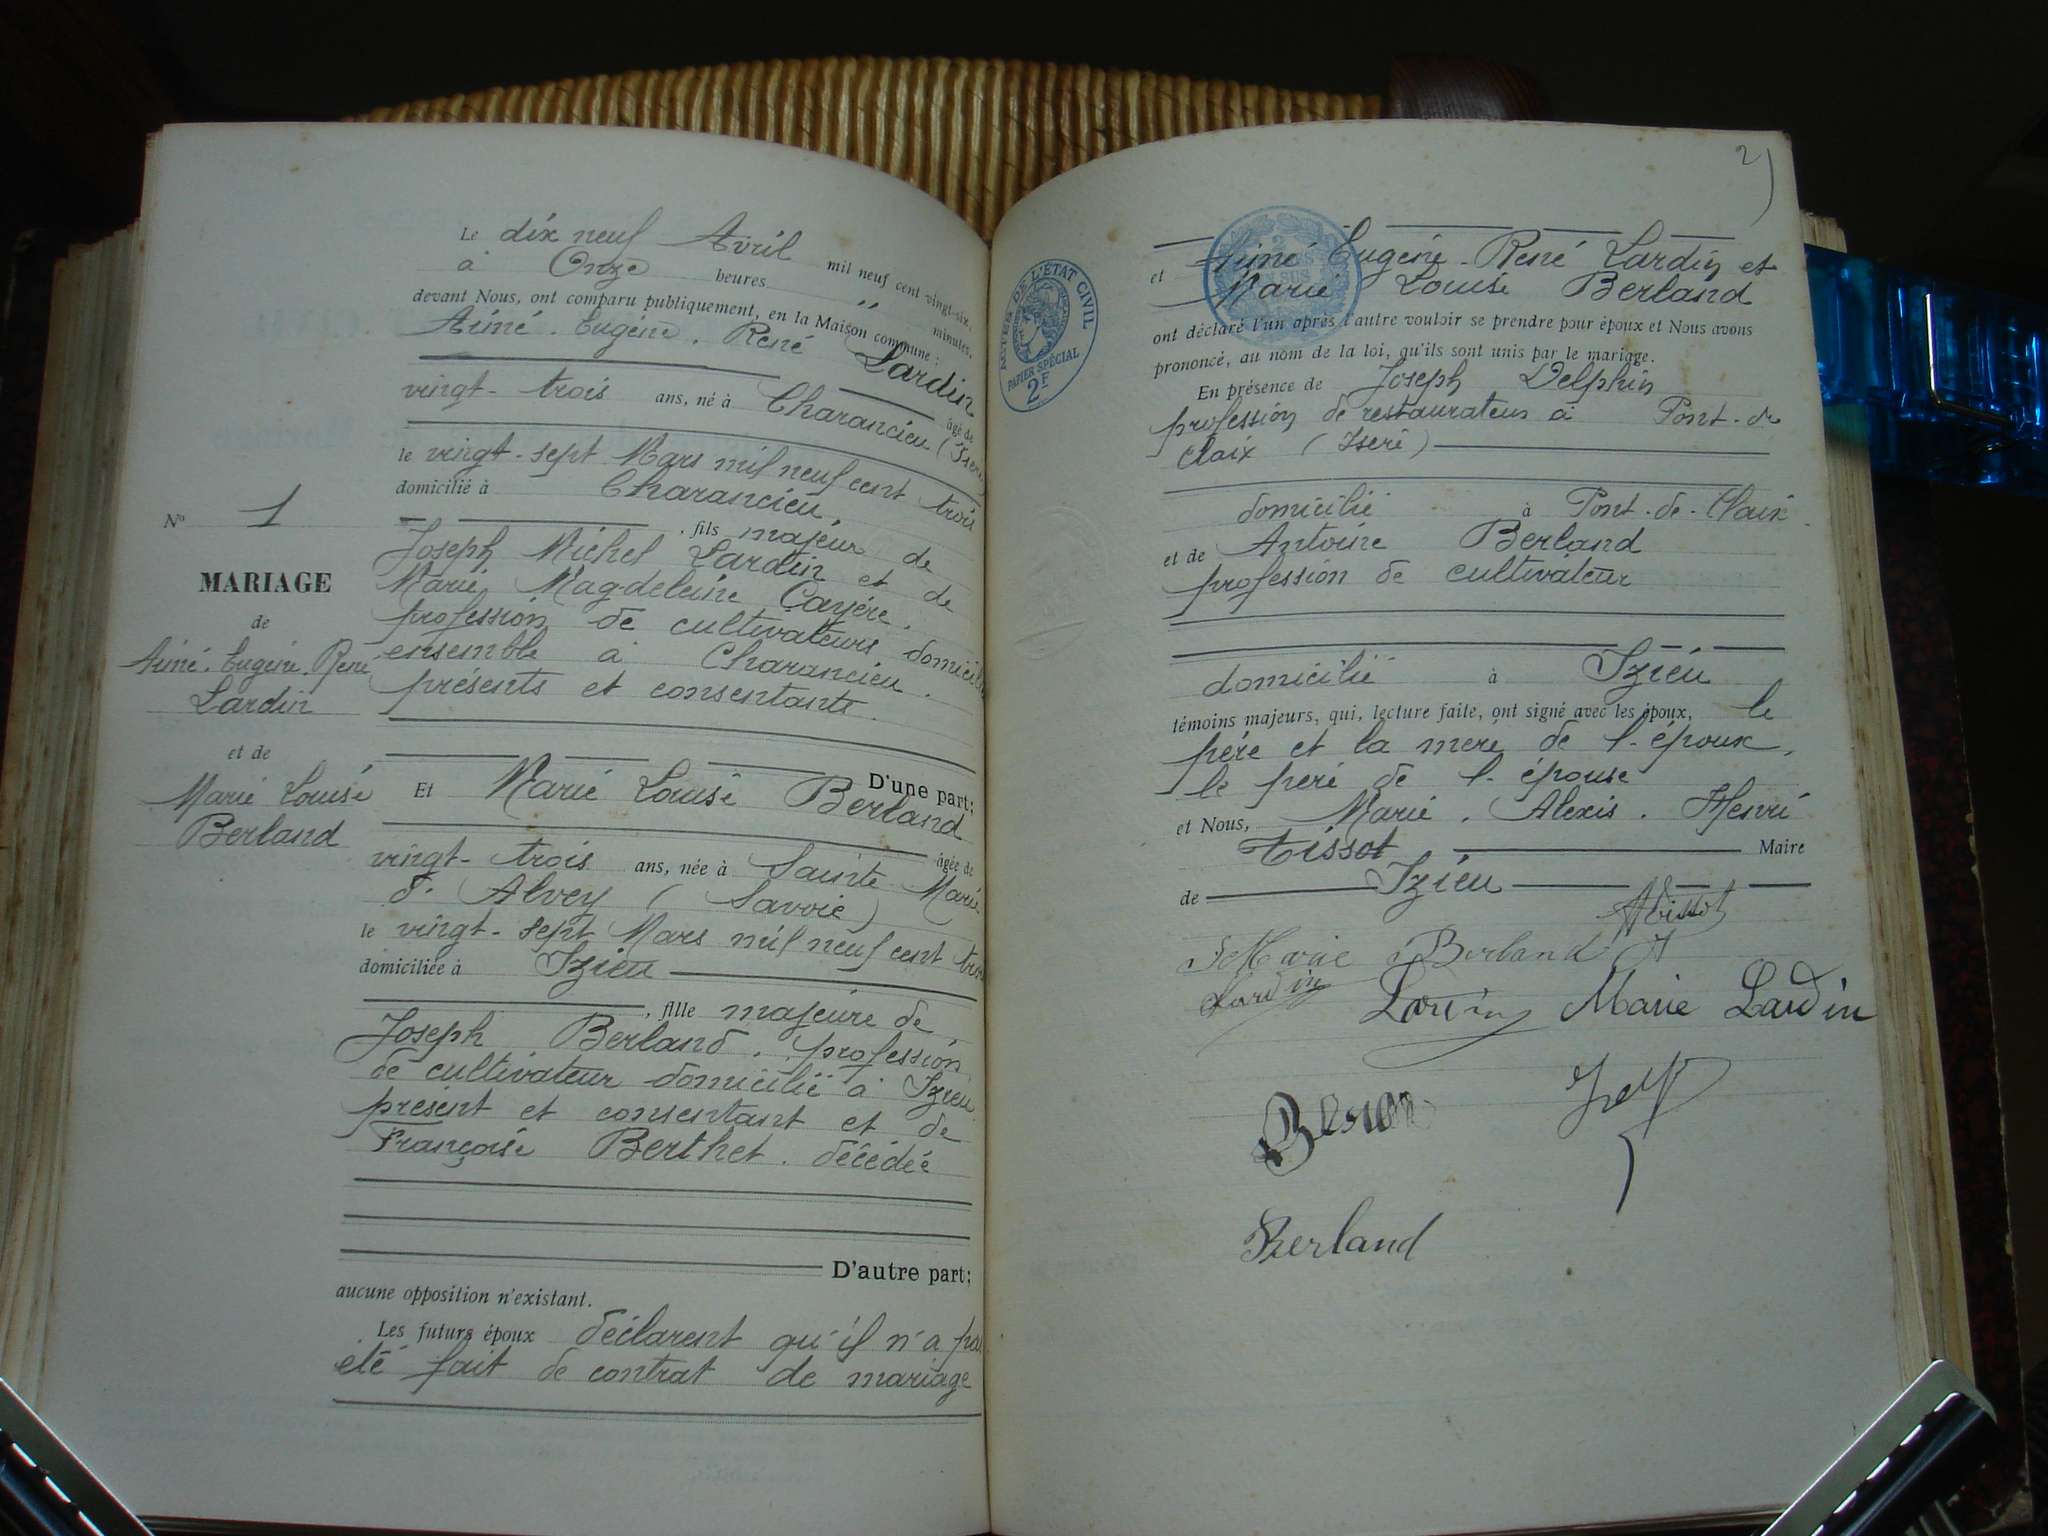 Nº 1
MARIAGE
de
Aimé. Eugéne. René
Lardin
et de
Marie Louise
Berland
Le dix neuf Avril mil neuf cent vingt-six,
à Onze heures ,, minutes,
devant Nous, ont comparu publiquement, en la Maison commune:
Aimé. Eugéne. René Lardin
âgé de
vingt-trois ans, né à Charancieu (Isère)
le vingt-sept Mars mil neuf cent trois
domicilié à Charancieu,
, fils majeur de
Joseph Michel Lardin et de
Marie Magdeleine Cayére.
profession de cultivateurs domicilié
ensemble à Charancieu.
présents et consentants.
D'une part;
Et Marie Louise Berland
âgée de
vingt-trois ans, née à Sainte Marie
d'Alvey (Savoie)
le vingt-sept Mars mil neuf cent trois
domiciliée à Izieu
, fille majeure de
Joseph Berland. profession
de cultivateur domicilié à Izieu
présent et consentant et de
Françoise Berthet. décédée
D'autre part;
aucune opposition n'existant.
Les futurs époux déclarent qu'il n'a pas
été fait de contrat de mariage
2)
ACTES DE L'ÉTAT CIVIL
PAPIER SPÉCIAL
2F
et Aimé Eugéne. René Lardin et
Marie Louise Berland
ont déclaré l'un après l'autre vouloir se prendre pour époux et Nous avons
prononcé, au nom de la loi, qu'ils sont unis par le mariage.
En présence de Joseph Delphin
profession de restaurateur à Pont-de
Claix (Isère)
domicilié à Pont-de-Claix.
et de Antoine Berland
profession de cultivateur
domicilié à Izieu
témoins majeurs, qui, lecture faite, ont signé avec les époux, le
père et la mere de l'époux,
le père de l'épouse
et Nous, Marie. Alexis. Henri
Tissot Maire
de Izieu
Tissot
Marie Berland
Lardin
Marie Lardin
Berland